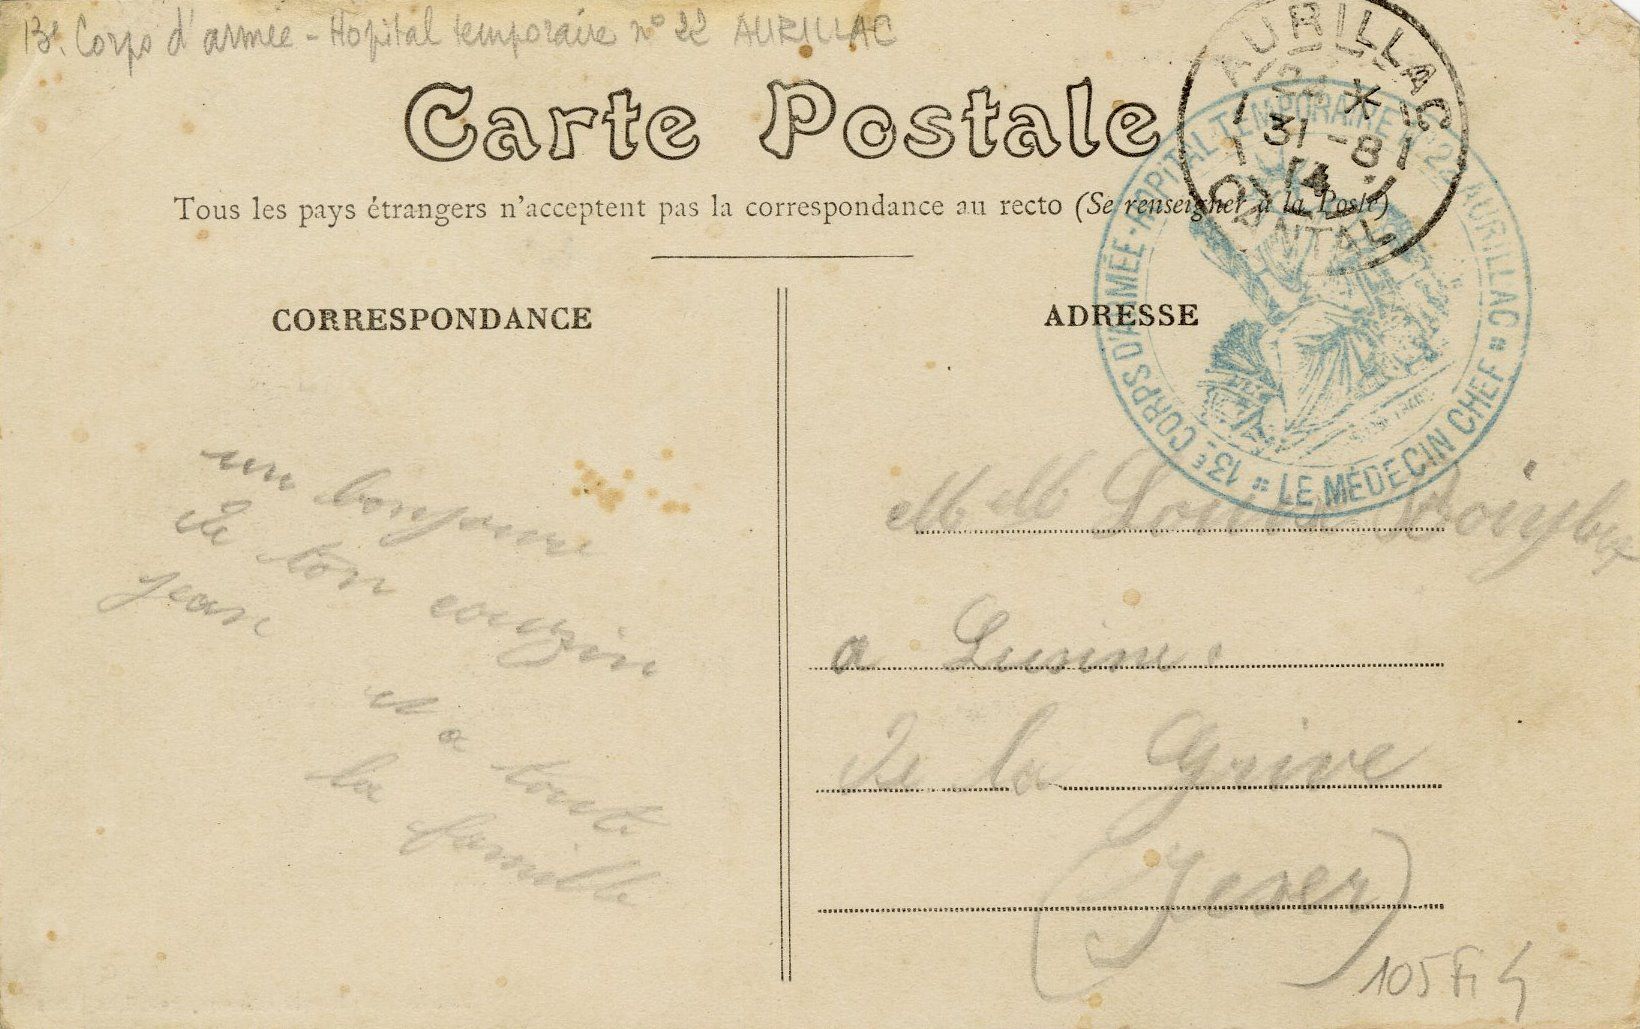 13e. Corps d'armée - Hopital temporaire n° 22 AURILLAC
Carte Postale
Tous les pays étrangers n'acceptent pas la correspondance au recto (Se renseigner à la Poste)
AURILLAC
31 - 8
14
CANTAL
13E CORPS D'ARMÉE - HOPITAL TEMPORAIRE N° 22 AURILLAC
LE MÉDECIN CHEF
CORRESPONDANCE
ADRESSE
un bonjour
de ton couzin
jean
et a toute
la famille
Louis
a Lusine
de la Grive
(Jeser)
105 Fi 4